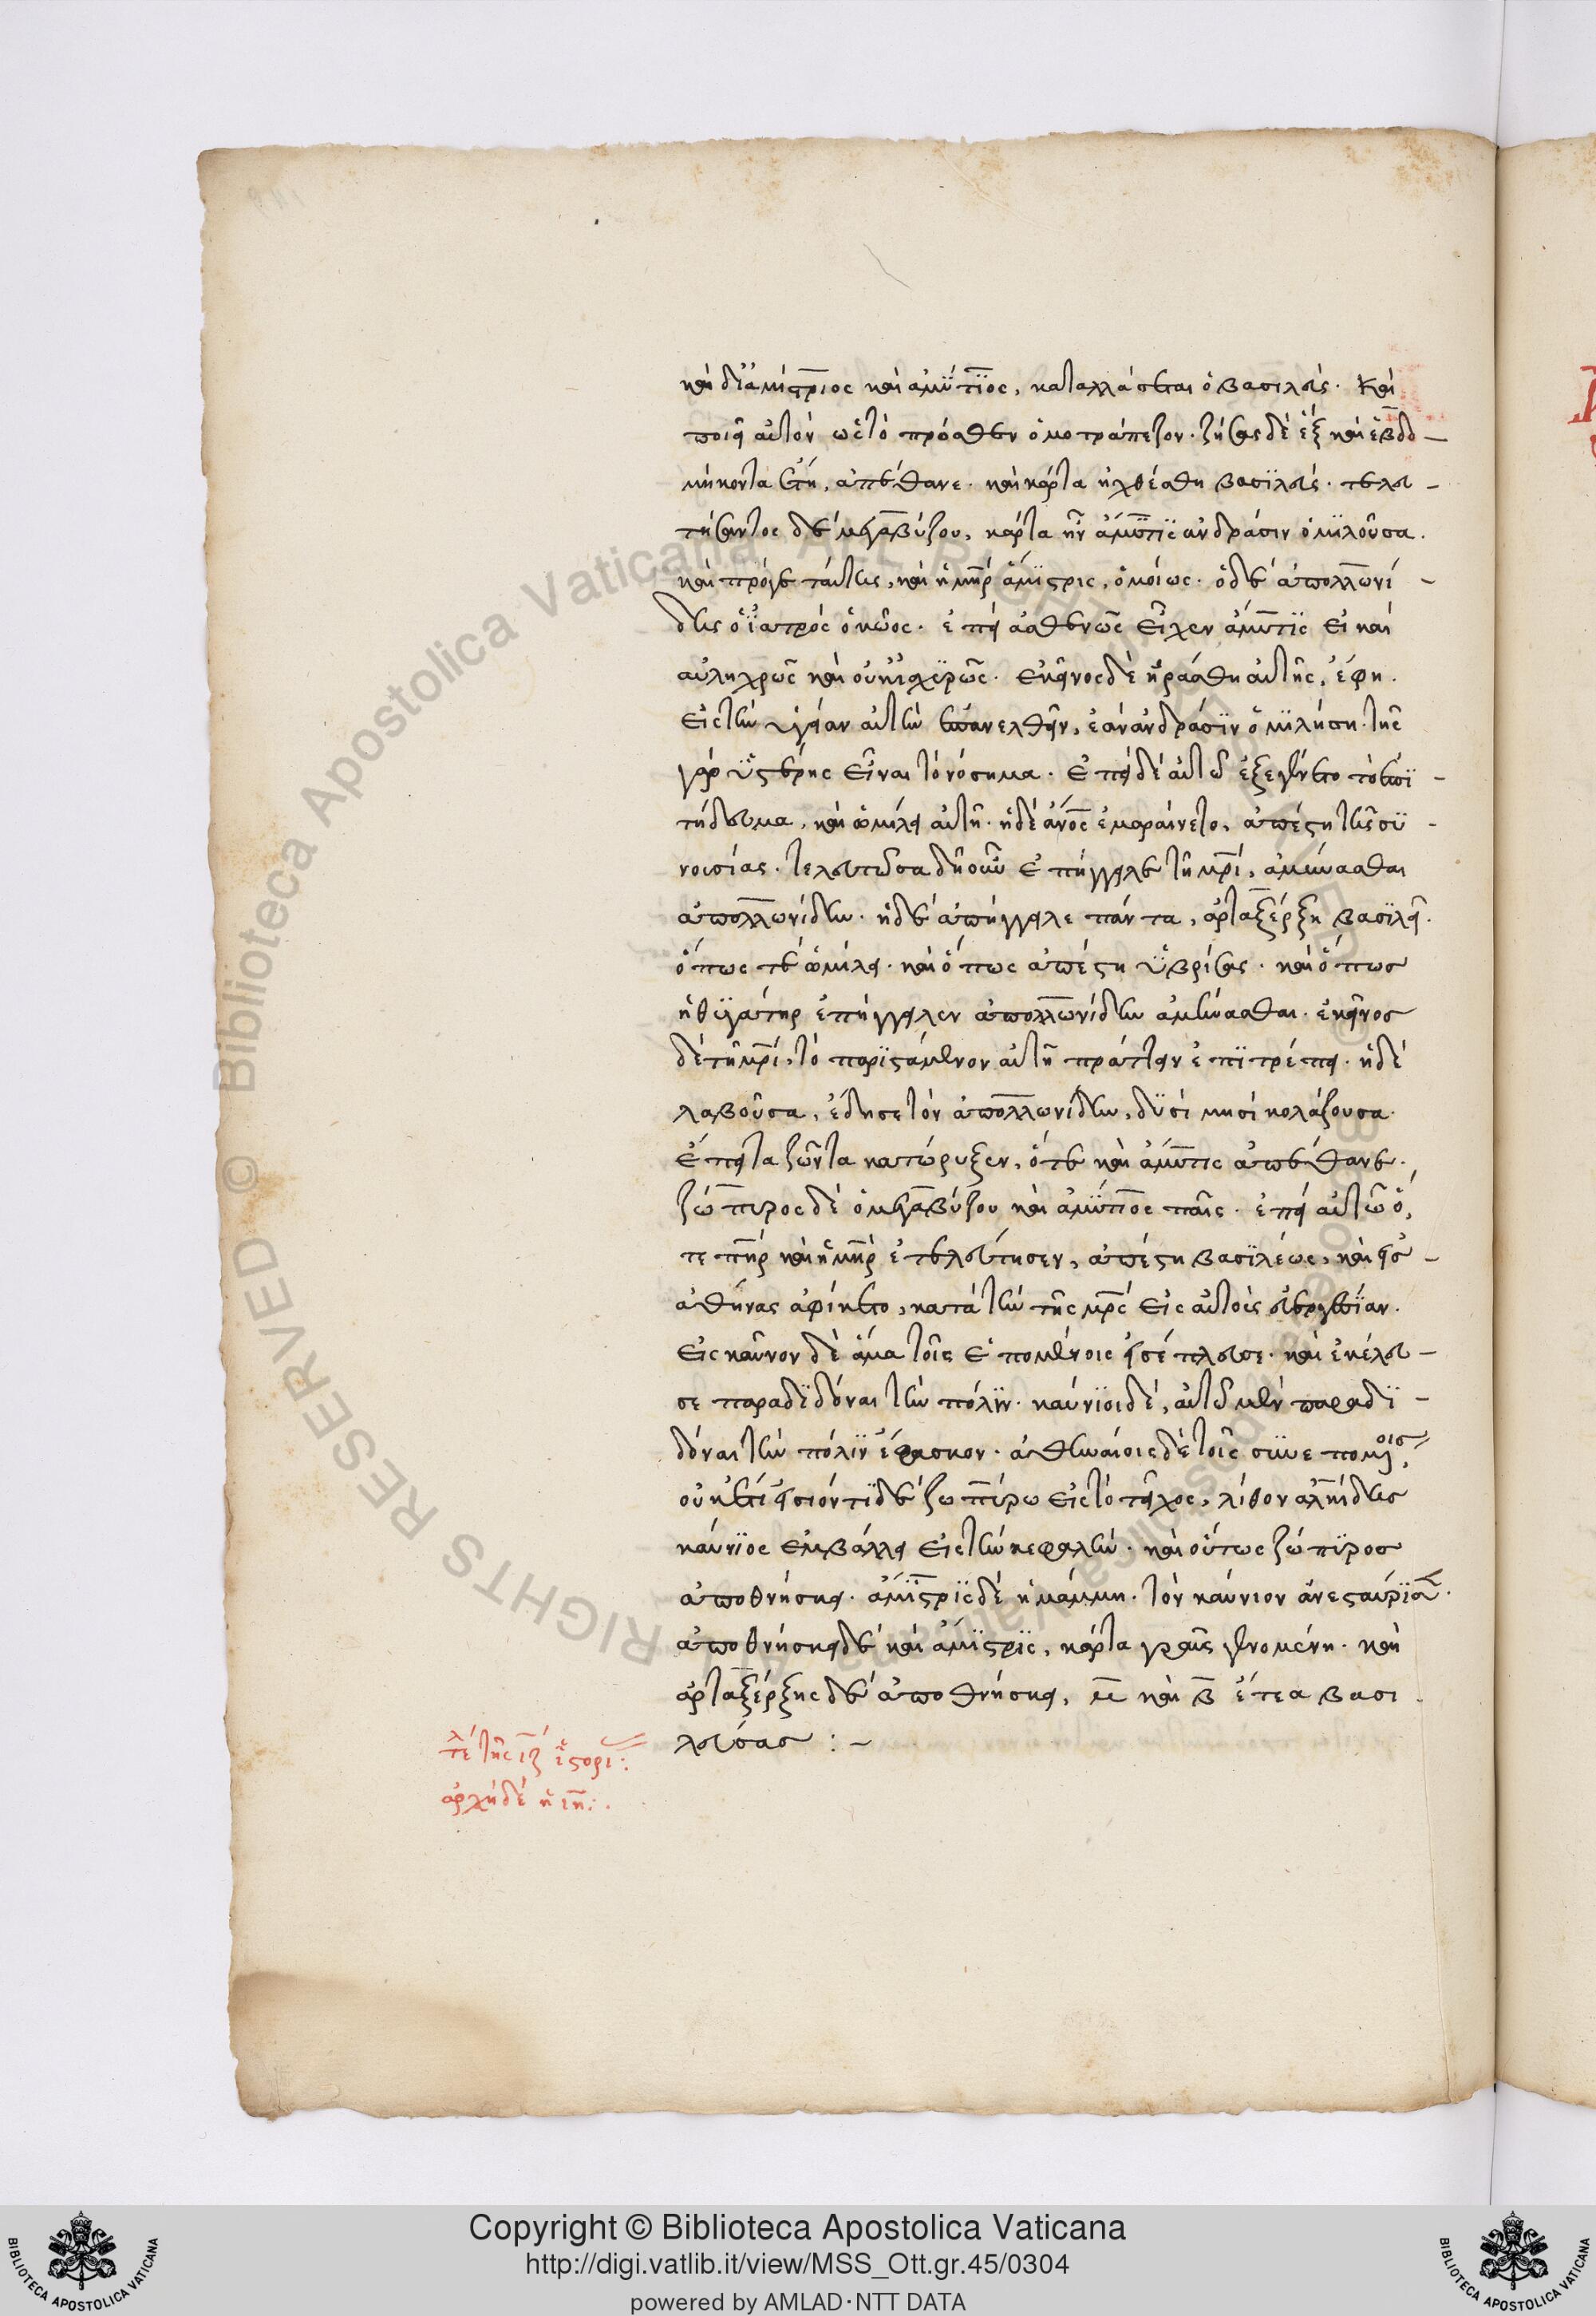 καὶ δι' ἀμίστριος καὶ ἀμύτιος, καταλλάσεται ὁ βασιλεύς. Καὶ
ποιεῖ αὐτὸν ὡς τὸ πρόσθεν ὁμοτράπεζον. ζήσας δὲ ἓξ καὶ ἑβδο-
μήκοντα ἔτη, ἀπέθανε. καὶ κάρτα ἠχθέσθη βασιλεύς. τελευ-
τήσαντος δὲ μεγαβύζου, κάρτα ἦν ἄμυτις ἀνδράσιν ὁμιλοῦσα.
καὶ πρόγε ταύτης, καὶ ἡ μηρ ἄμιστρις, ὁμοίως. ὁ δὲ ἀπολλωνί-
δης ὁ ἰατρός ὁ κῶος. ἐπεὶ ἀσθενῶς εἶχεν ἄμυτις εἰ καὶ
αὐληχρῶς καὶ οὐκ ἰσχυρῶς. ἐκεῖνος δὲ ἠράσθη αὐτῆς, ἔφη.
εἰς τὴν ὑγείαν αὐτὴν ἐπανελθεῖν, ἐὰν ἀνδράσιν ὁμιλήση. τῆς
γὰρ ὑστέρης εἶναι τὸ νόσημα. ἐπεὶ δὲ αὐτῶ ἐξεγένετο τὸ ἐπι-
τήδευμα, καὶ ὡμίλει αὐτῆ. ἡ δὲ ἄνος ἐμαραίνετο, ἀπέστη τῆς συ-
νουσίας. τελευτῶσα δὴ οὖν ἐπήγγειλε τῆ μρὶ, ἀμύνασθαι
ἀπολλωνίδην. ἡ δὲ ἀπήγγειλε πάντα, ἀρταξέρξη βασιλεῖ.
ὅπως τὲ ὡμίλει. καὶ ὅπως ἀπέστη ὑβρίσας. καὶ ὅπως
ἡ θυγάτηρ ἐπήγγειλεν ἀπολλωνίδην ἀμύνασθαι. ἐκεῖνος
δὲ τῆ μρὶ, τὸ παριστάμενον αὐτῆ πράττειν ἐπιτρέπει. ἡ δὲ
λαβοῦσα, ἔδησε τὸν ἀπολλωνίδην, δυσὶ μησὶ κολάζουσα.
ἔπειτα ζῶντα κατώρυξεν, ὅτε καὶ ἄμυτις ἀπέθανε.
ζώπυρος δὲ ὁ μεγαβύζου καὶ ἀμύτιος παῖς. ἐπεὶ αὐτῶ ὅ,
τε πηρ καὶ ἡ μηρ ἐτελεύτησεν, ἀπέστη βασιλέως, καὶ εἰς
ἀθήνας ἀφίκετο, κατὰ τὴν τῆς μρς εἰς αὐτοὺς εὐεργεσίαν.
εἰς καῦνον δὲ ἅμα τοῖς ἑπομένοις εἰσέπλευσε. καὶ ἐκέλευ-
σε παραδιδόναι τὴν πόλιν. καύνιοι δὲ, αὐτῶ μὲν παραδι-
δόναι τὴν πόλιν ἔφασκον. ἀθηναίοις δὲ τοῖς συνεπομένοις
οὐκέτι εἰσιόντι δὲ ζωπύρω εἰς τὸ τεῖχος, λίθον ἀλκίδης
καύνιος ἐμβάλλει εἰς τὴν κεφαλήν. καὶ οὕτως ζώπυρος
ἀποθνήσκει. ἄμιστρις δὲ ἡ μάμμη. τὸν καύνιον ἀνεσταύρισεν.
ἀποθνήσκει δὲ καὶ ἄμιστρις, κάρτα γραῦς γενομένη. καὶ
ἀρταξέρξης δὲ ἀποθνήσκει, μ καὶ β ἔτεα βασι
λεύσας : –
τέλ τῆς ιζ ἱστορι:
ἀρχὴ δὲ ἡ ιη:.
Copyright © Biblioteca Apostolica Vaticana
http://digi.vatlib.it/view/MSS_Ott.gr.45/0304
powered by AMLAD·NTT DATA